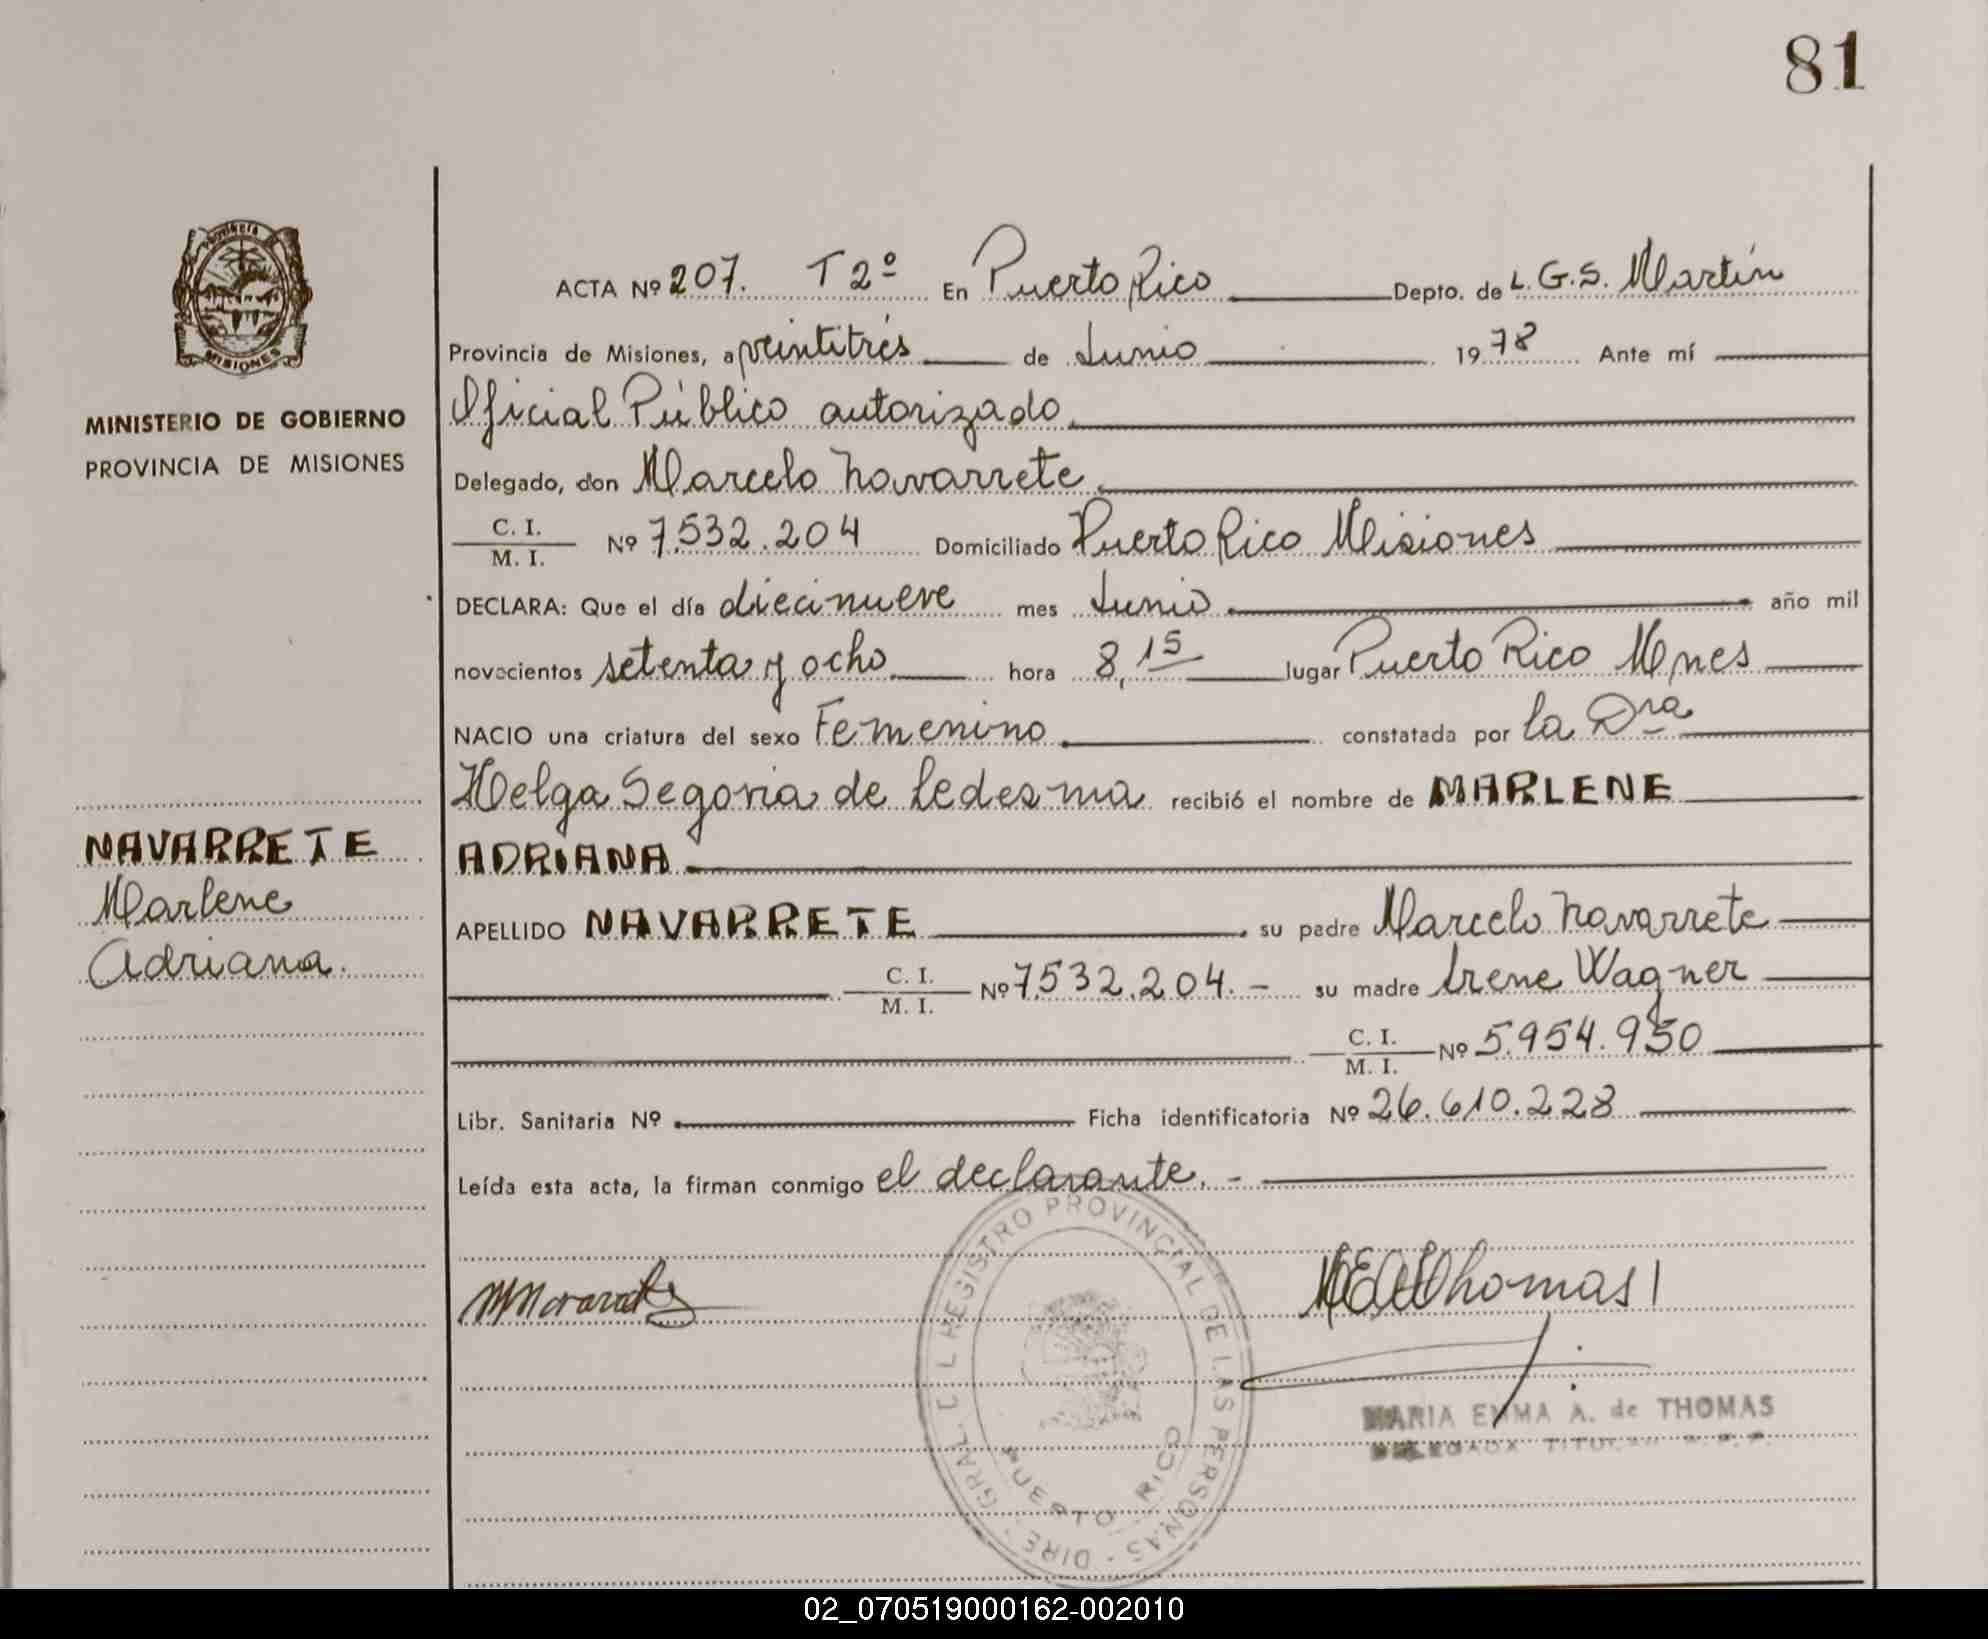 81
Provincia
MISIONES
MINISTERIO DE GOBIERNO
PROVINCIA DE MISIONES
NAVARRETE
Marlene
Adriana.
ACTA Nº 207. T 2º En Puerto Rico Depto. de L. G. S. Martín
Provincia de Misiones, a veintitrés de Junio 1978 Ante mí
Oficial Público autorizado
Delegado, don Marcelo Navarrete
C. I.
M. I. Nº 7.532.204 Domiciliado Puerto Rico Misiones
DECLARA: Que el día diecinueve mes Junio año mil
novecientos setenta y ocho hora 8,15 lugar Puerto Rico Mnes
NACIO una criatura del sexo Femenino constatada por la Dra
Helga Segovia de Ledesma recibió el nombre de MARLENE
ADRIANA
APELLIDO NAVARRETE su padre Marcelo Navarrete
C. I.
M. I. Nº 7.532.204. - su madre Irene Wagner
C. I.
M. I. Nº 5.954.950
Libr. Sanitaria Nº Ficha identificatoria Nº 26.610.228
Leída esta acta, la firman conmigo el declarante. -
REGISTRO PROVINCIAL DE LAS PERSONAS - DIRE. GRAL. DEL
PUERTO RICO
MARIA EMMA A. de THOMAS
DELEGADA TITULAR R. P. P.
02_070519000162-002010